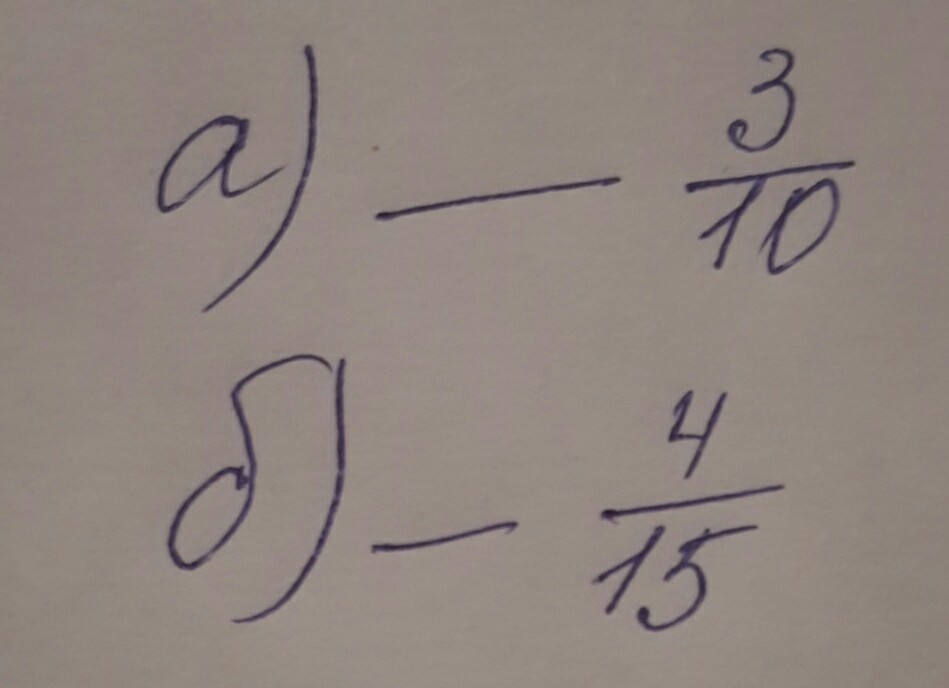 а) — 3/10
б) — 4/15